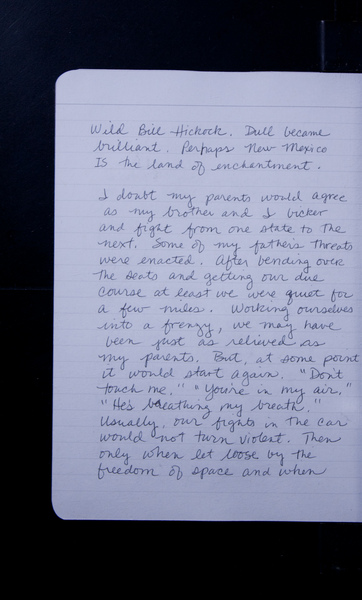 Wild Bill Hickock. Dull became
brilliant. Perhaps New Mexico
Is the land of enchantment.
I doubt my parents would agree
as my brother and I bicker
and fight from one state to the
next. Some of my father's threats
were enacted. After bending over
the seats and getting our due
course at least we were quiet for
a few miles. Working ourselves
into a frenzy, we may have
been just as relieved as
my parents. But, at some point
it would start again. "Don't
touch me." "You're in my air."
"He's breathing my breath."
Usually, our fights in the car
would not turn violent. Then
only when let loose by the
freedom of space and when